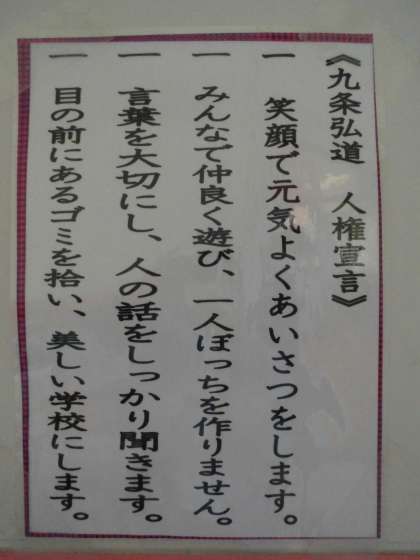 《九条弘道　人権宣言》
一　笑顔で元気よくあいさつをします。
一　みんなで仲良く遊び、一人ぼっちを作りません。
一　言葉を大切にし、人の話をしっかり聞きます。
一　目の前にあるゴミを拾い、美しい学校にします。